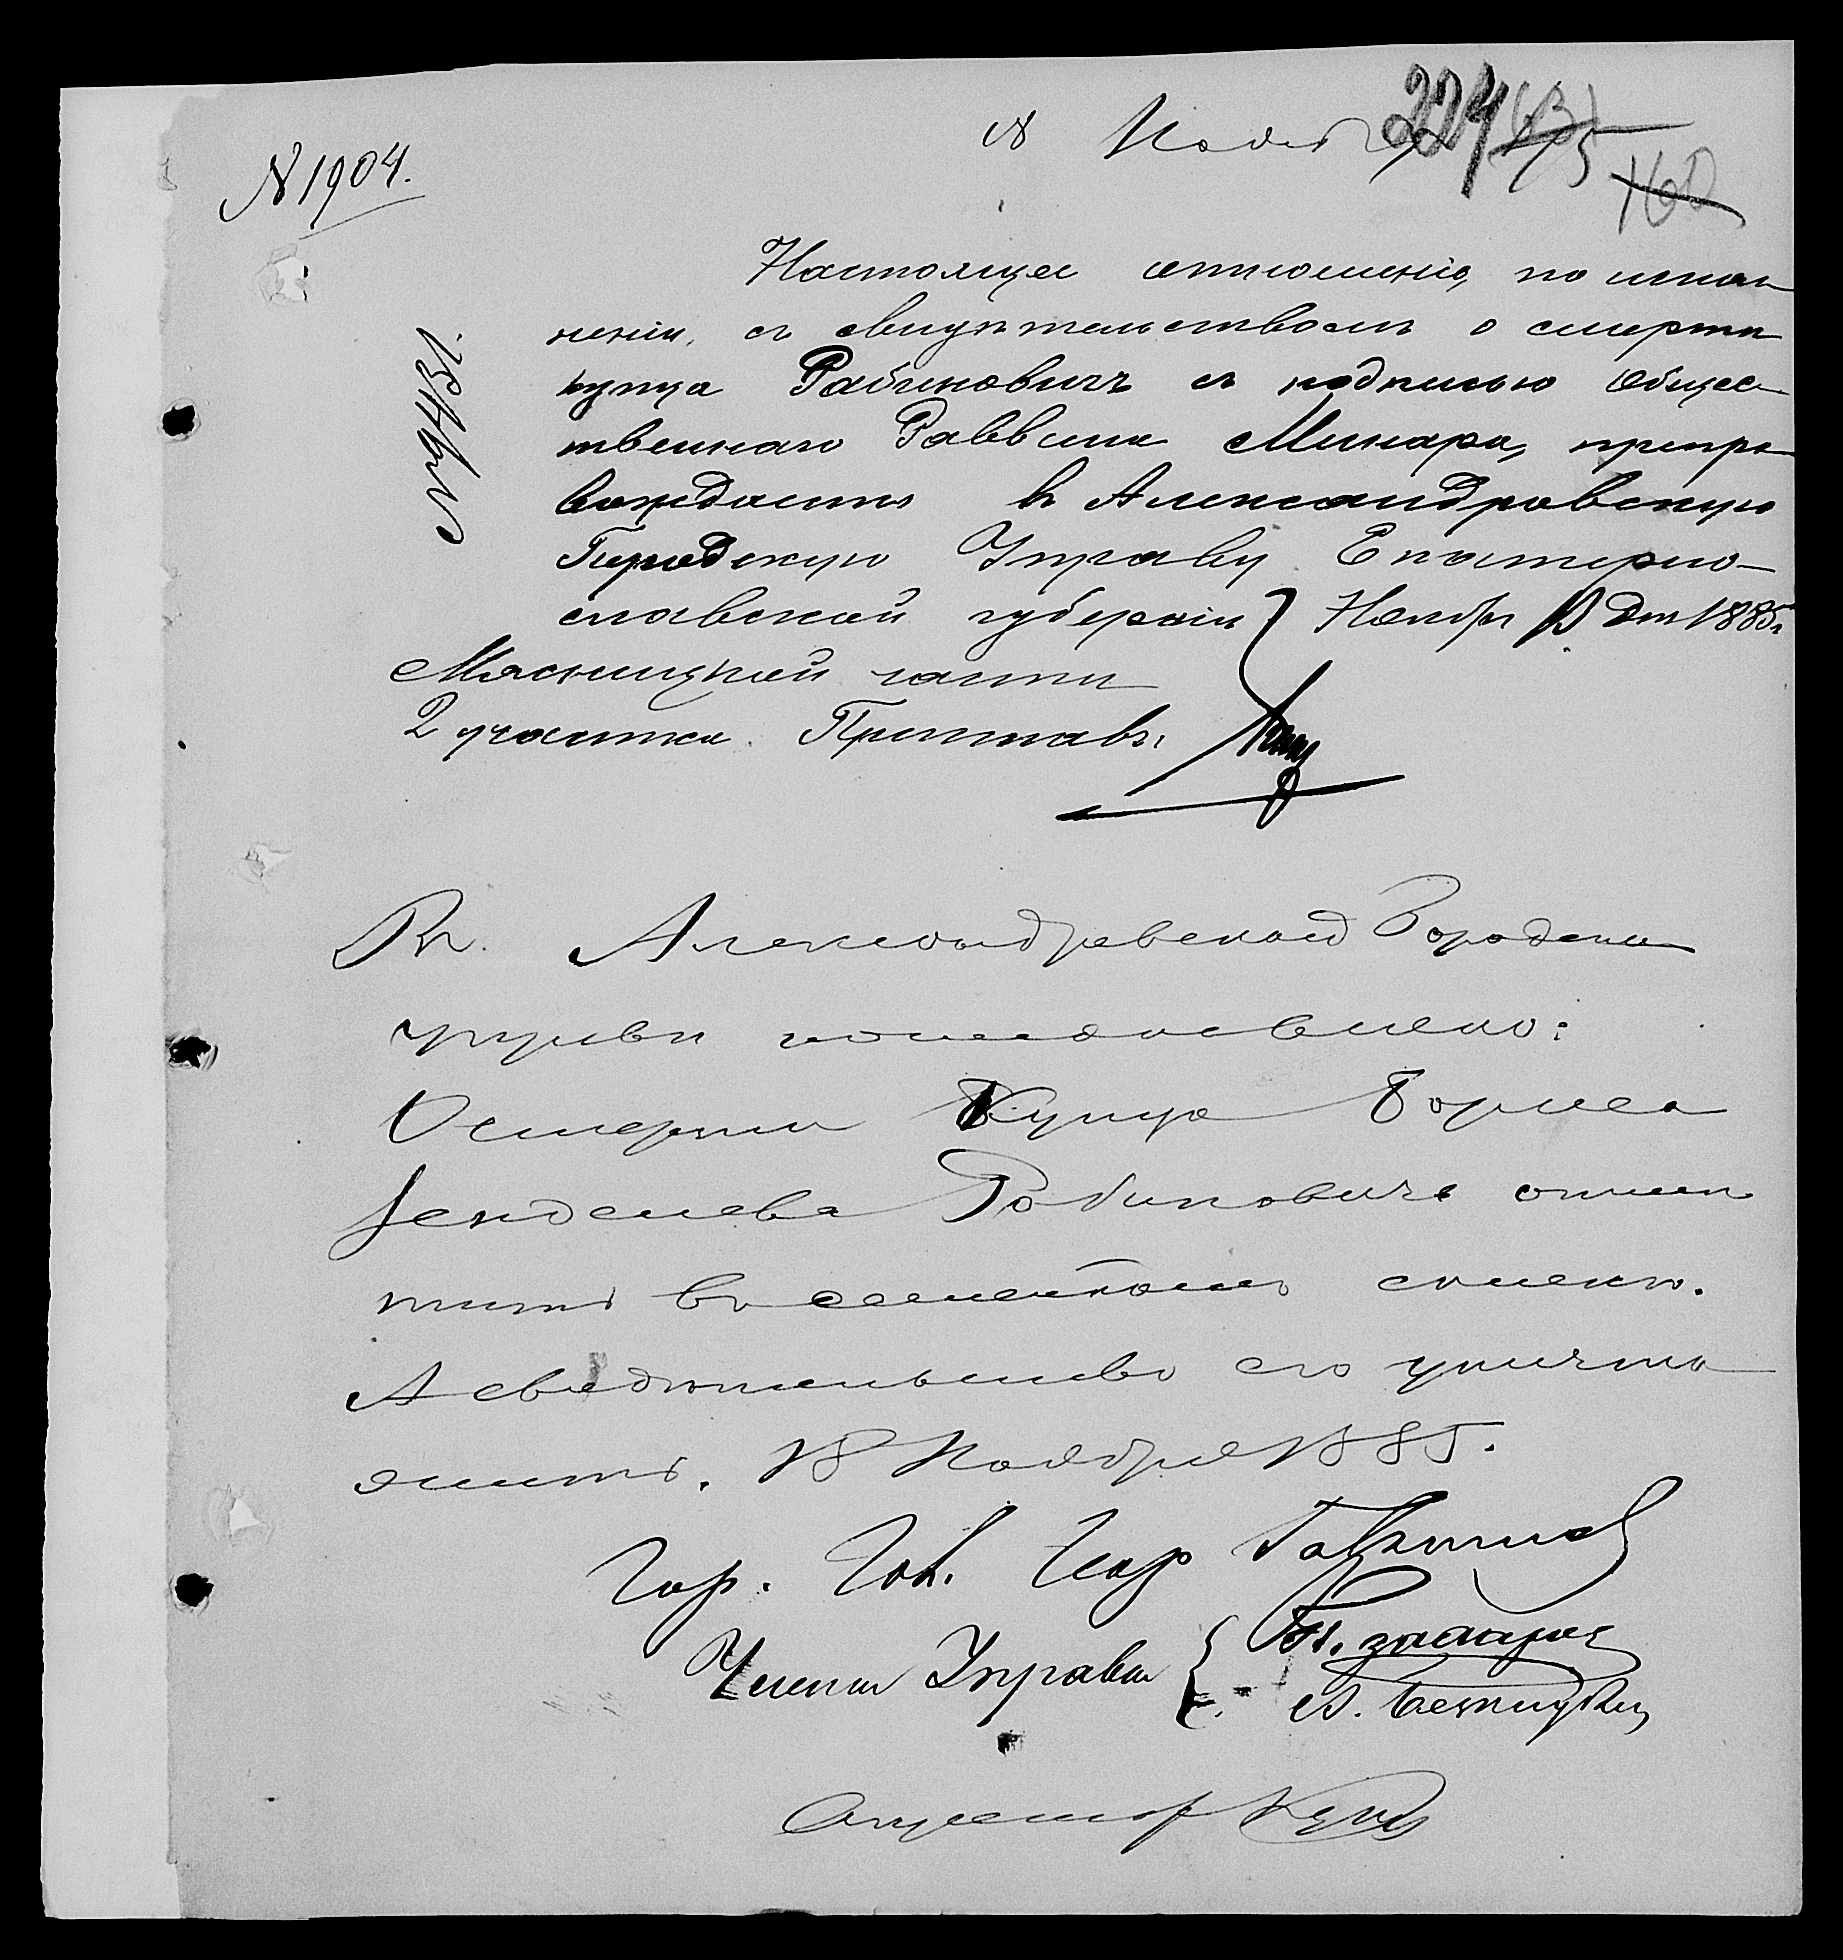 224
18 Ноября
160
№ 1904.
Настоящее отношение, по испол
неніи, съ свидѣтельствомъ о смерти
купца Рабиновичъ съ подписью Общес
твеннаго Раввина Минора, препро
вождается въ Александровскую
Городскую Управу Екатерино-
славской губерніи Ноября дня 1885г.
Мясницкой части
2 участка Приставъ
Въ Александровской Городской
управѣ постановлено:
О смерти Купца Бориса
Менделева Рабиновичъ отмѣ
тить въ семейномъ спискѣ.
А свидѣтельство его уничто
жить. 18 Ноября 1885.
Гор. Гол.
Члены Управы
Секретарь